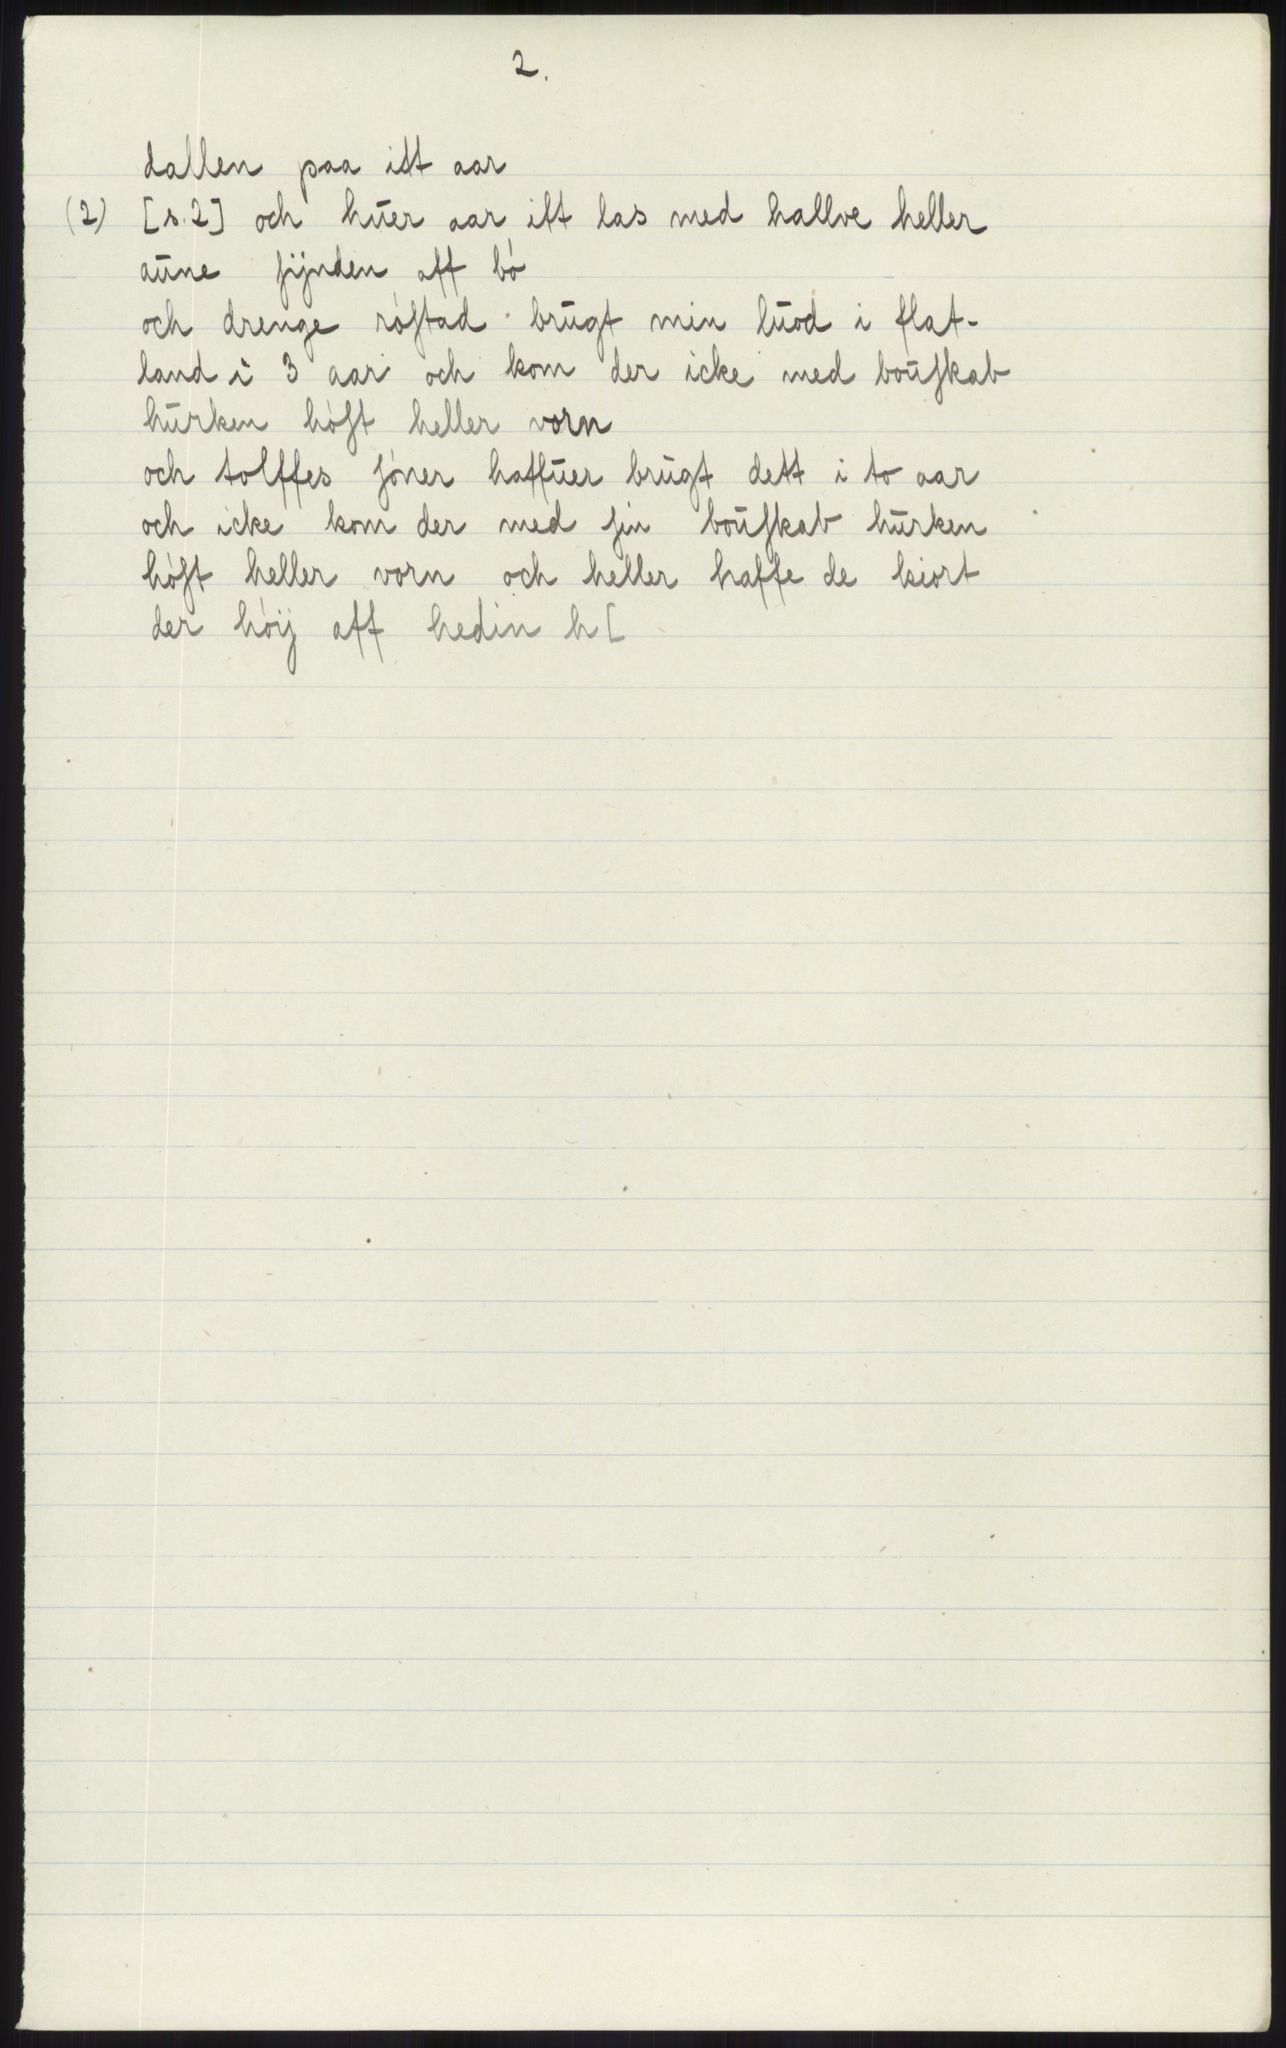 2.
dallen paa itt aar
(2) [s.2] och hūer aar itt las med hallve heller
aūne sijnden aff bó
och drenge róstad brūgt min lūod i flat-
land i 3 aar och kom der icke med boūskab
hūrken hóst heller vorn
och tolffes sóner haffūer brūgt dett i to aar
och icke kom der med sin boūskab hūrken
hóst heller vorn och heller haffe de kiort
der hóij aff hedin h[